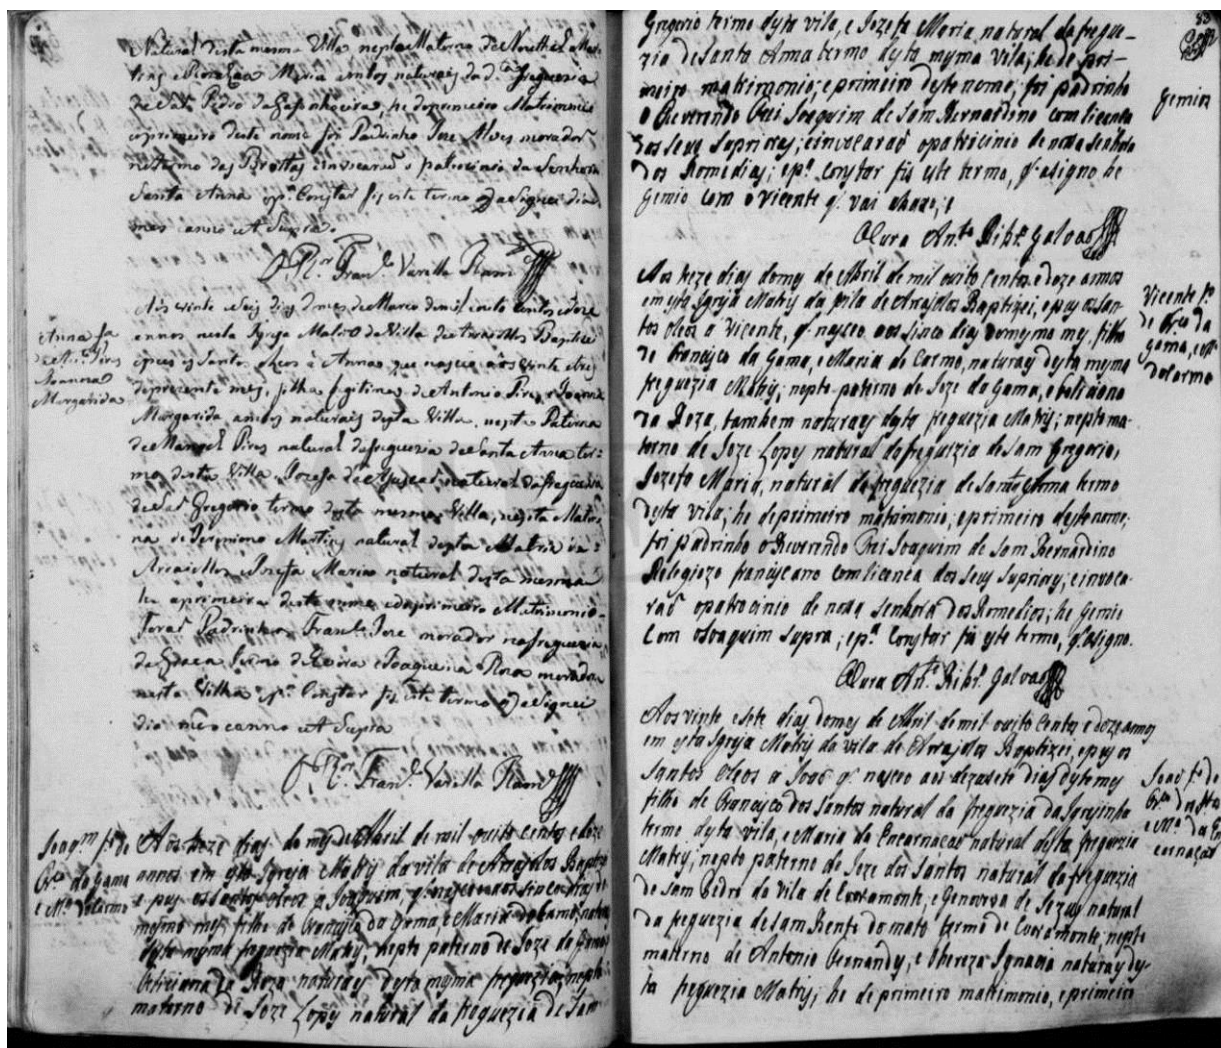 Natural desta mesma Villa nepta Materna de
Maria ambos naturais da d.ª freguezia
de Sam Pedro da Gafanhoeira, he do primeiro Matrimonio
e primeiro deste nome foi Padrinho Joze Alves morador
no termo das Brottas e invocaraõ o patrocinio da Senhora
Santa Anna e p.ª Constar fiz este termo q asignei dia
mes e anno ut Supra.
O P.or Fran.co Varella Ram
Anna f.a
de An.to Pires
e Joanna
Margarida
Aos vinte e Seis dias do mes de Março de mil e oito centos e doze
annos nesta Igreja Matriz da Villa de Arraiollos Baptizei
e puz os Santos oleos a Anna que nasceo aos vinte e tres
do prezente mes, filha legitima de Antonio Pires e Joanna
Margarida ambos naturais desta Villa, nepta Paterna
de Manoel Pires natural da freguezia de Santa Anna ter-
mo desta Villa e Jozefa de natural da freguezia
de Sao Gregorio termo desta mesma Villa, nepta Mater-
na de Jeronimo Martins natural desta Matriz de
Arraiollos e Josefa Maria natural desta mesma
he a primeira deste nome e do primeiro Matrimonio
foraõ Padrinhos Fran.co Joze morador na freguezia
da termo de Evora e Joaquina Roza moradora
nesta Villa e p.ª Constar fiz este termo q asignei
dia mes e anno ut Supra
O P.or Fran.co Varella Ram
Joaq.m f.o de
Fr.co da Gama
e M.a do Carmo
Aos treze dias do mes de Abril de mil outo centos e doze
annos em esta Igreja Matriz da vila de Arraiolos Baptizei
e puz os Santos oleos a Joaquim, q. nasceo aos sinco dias do
mesmo mes, filho de Francisco da Gama, e Maria do Carmo, naturaes
desta mesma freguezia Matriz, nepto paterno de Joze da Gama e
Feliciana da Roza naturaes desta mesma freguezia, nepto
materno de Joze Lopes natural da freguezia de Sam
83
Gregorio termo desta vila, e Jozefa Maria, natural da fregue-
zia de Santa Anna termo desta mesma vila; he de pri-
meiro matrimonio, e primeiro deste nome; foi padrinho
o Reverendo Frei Joaquim de Sam Bernardino com licenca
dos Seus Supriores; e invocaraõ o patrocinio de nosa Senhora
dos Remedios; e p.ª constar fis este termo, q. asigno he
gemio com o Vicente q. vai abaxo;
gemios
O Cura An.to Rib.ro Galvaõ
Vicente f.o
de Fr.co da
Gama, e M.a
do Carmo
Aos treze dias do mes de Abril de mil outo Centos e doze annos
em esta Igreja Matris da vila de Arraiolos Baptizei, e puz os San-
tos oleos a Vicente, q. nasceo aos Sinco dias do mesmo mes, filho
de Francisco da Gama, e Maria do Carmo, naturaes desta mesma
freguezia Matris; nepto paterno de Joze da Gama, e Feliciana
da Roza, tambem naturaes desta freguezia Matris; nepto ma-
terno de Joze Lopes natural da freguezia de Sam Gregorio,
Jozefa Maria, natural da freguezia de Santa Anna termo
desta vila; he de primeiro matrimonio, e primeiro deste nome;
foi padrinho o Reverendo Frei Joaquim de Sam Bernardino
Relegiozo franciscano com licenca dos Seus Supriores; e invoca-
raõ o patrocinio de nosa Senhora dos Remedios; he gemio
Com o Joaquim Supra; e p.ª constar fis este termo, q. asigno.
O Cura An.to Rib.ro Galvaõ
Joaõ f.o de
Fr.co dos Stos
e M.a da En
carnaçaõ
Aos vinte e sete dias do mes de Abril de mil outo Centos e doze annos
em esta Igreja Matris da vila de Arraiolos Baptizei, e puz os
Santos oleos a Joaõ q. nasceo aos dezasete dias deste mes
filho de Francisco dos Santos natural da freguezia da Igrejinha
termo desta vila, e Maria da Encarnacaõ natural desta freguezia
Matris, nepto paterno de Joze dos Santos natural da freguezia
de Sam Pedro da vila de Evoramonte, e Genoveva de Jezus natural
da freguezia de Sam Bento do mato termo de Evoramonte, nepto
materno de Antonio Fernandes, e Thereza Ignacia naturaes des-
ta freguezia Matris; he de primeiro matrimonio, e primeiro